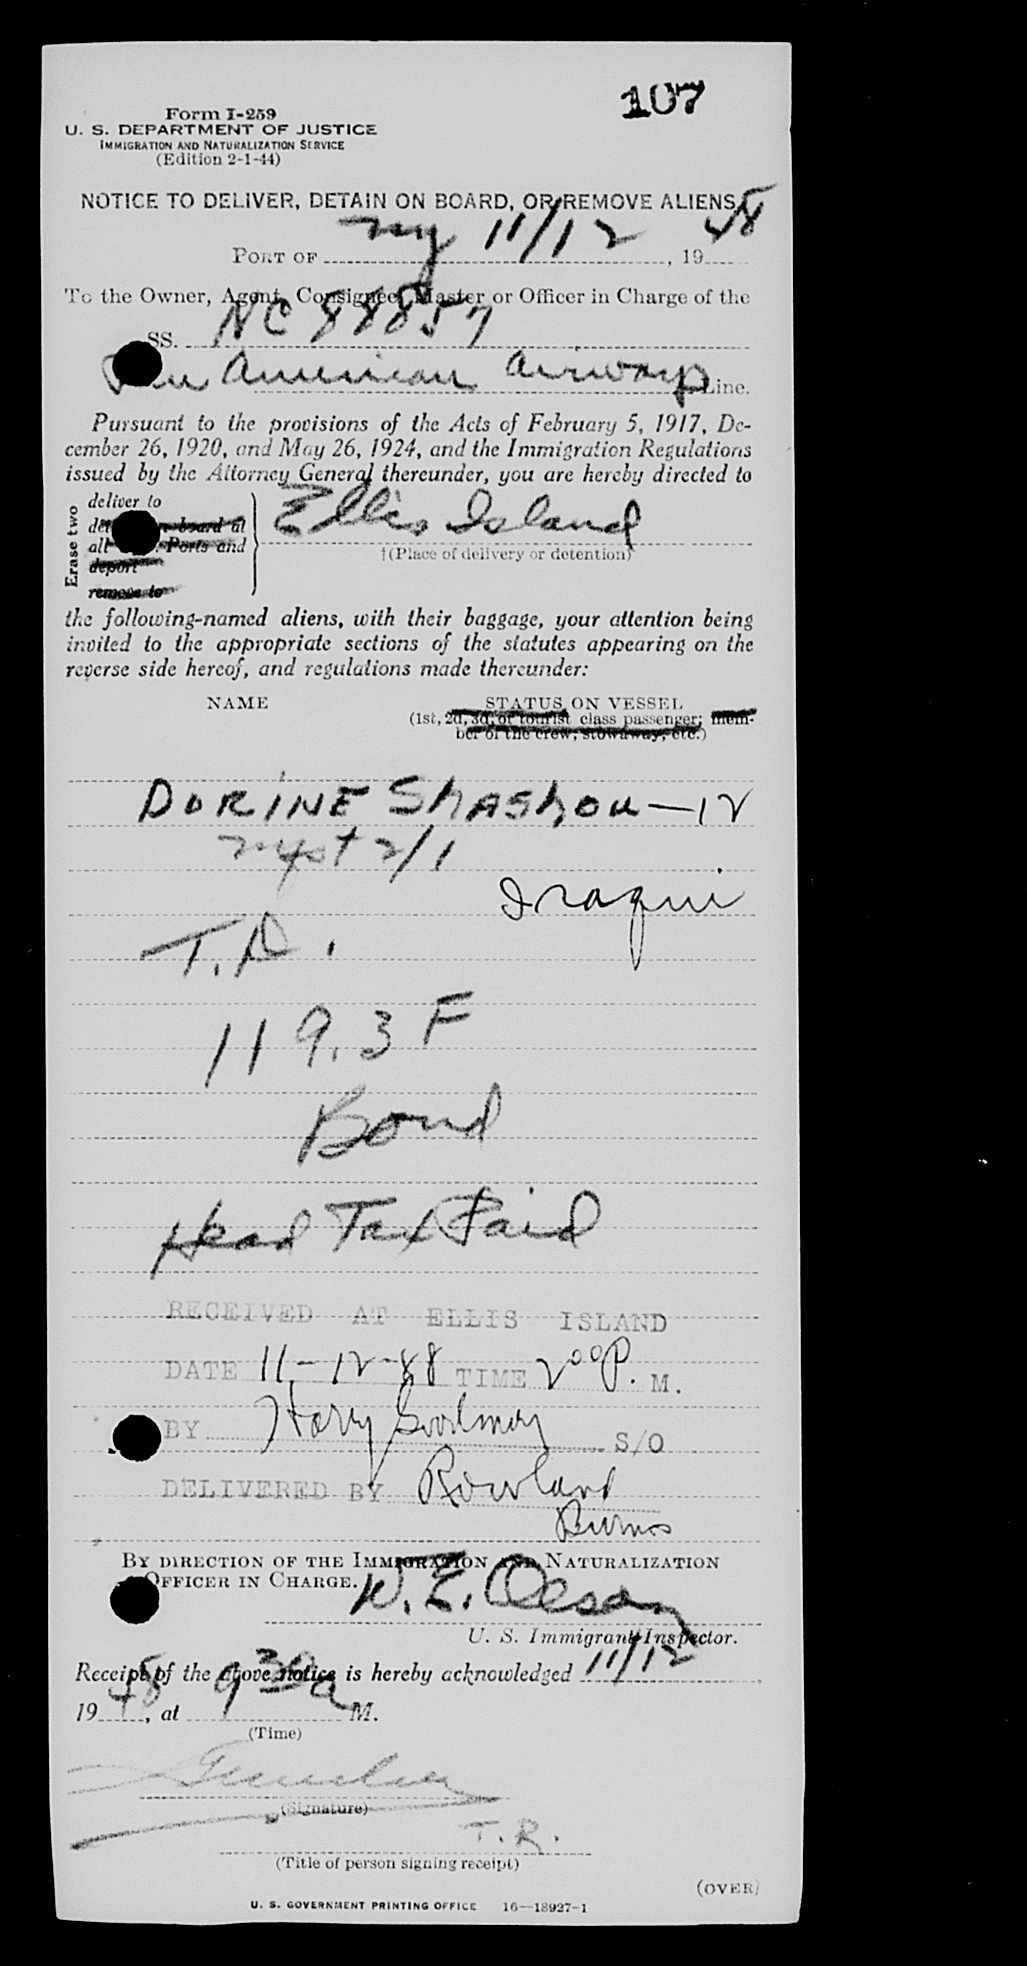 107
Form I-259
U. S. DEPARTMENT OF JUSTICE
IMMIGRATION AND NATURALIZATION SERVICE
(Edition 2-1-44)
NOTICE TO DELIVER, DETAIN ON BOARD, OR REMOVE ALIENS
PORT OF ny 11/12, 19 48
To the Owner, Agent, Consignee, Master or Officer in Charge of the
SS. NC 88857
Pan American Airways Line.
Pursuant to the provisions of the Acts of February 5, 1917, De-
cember 26, 1920, and May 26, 1924, and the Immigration Regulations
issued by the Attorney General thereunder, you are hereby directed to
Erase two
deliver to
board at
all Ports and
deport
remove to
Ellis Island
†(Place of delivery or detention)
the following-named aliens, with their baggage, your attention being
invited to the appropriate sections of the statutes appearing on the
reverse side hereof, and regulations made thereunder:
NAME STATUS ON VESSEL
(1st, 2d, 3d, or tourist class passenger; mem-
ber of the crew; stowaway, etc.)
DORINE Shashou — 12
2/1
Iraqui
T.D.
119.3 F
Bond
Head Tax Paid
RECEIVED AT ELLIS ISLAND
DATE 11-12-48 TIME 2 00 P. M.
BY Harry Goodman S/O
DELIVERED BY Rowland
Burns
BY DIRECTION OF THE IMMIGRATION AND NATURALIZATION
OFFICER IN CHARGE. W. E. Olesan
U. S. Immigrant Inspector.
Receipt of the above notice is hereby acknowledged 11/12,
19 48, at 9 30 a M.
(Time)
(Signature)
T.R.
(Title of person signing receipt)
(OVER)
U. S. GOVERNMENT PRINTING OFFICE 16—18927-1